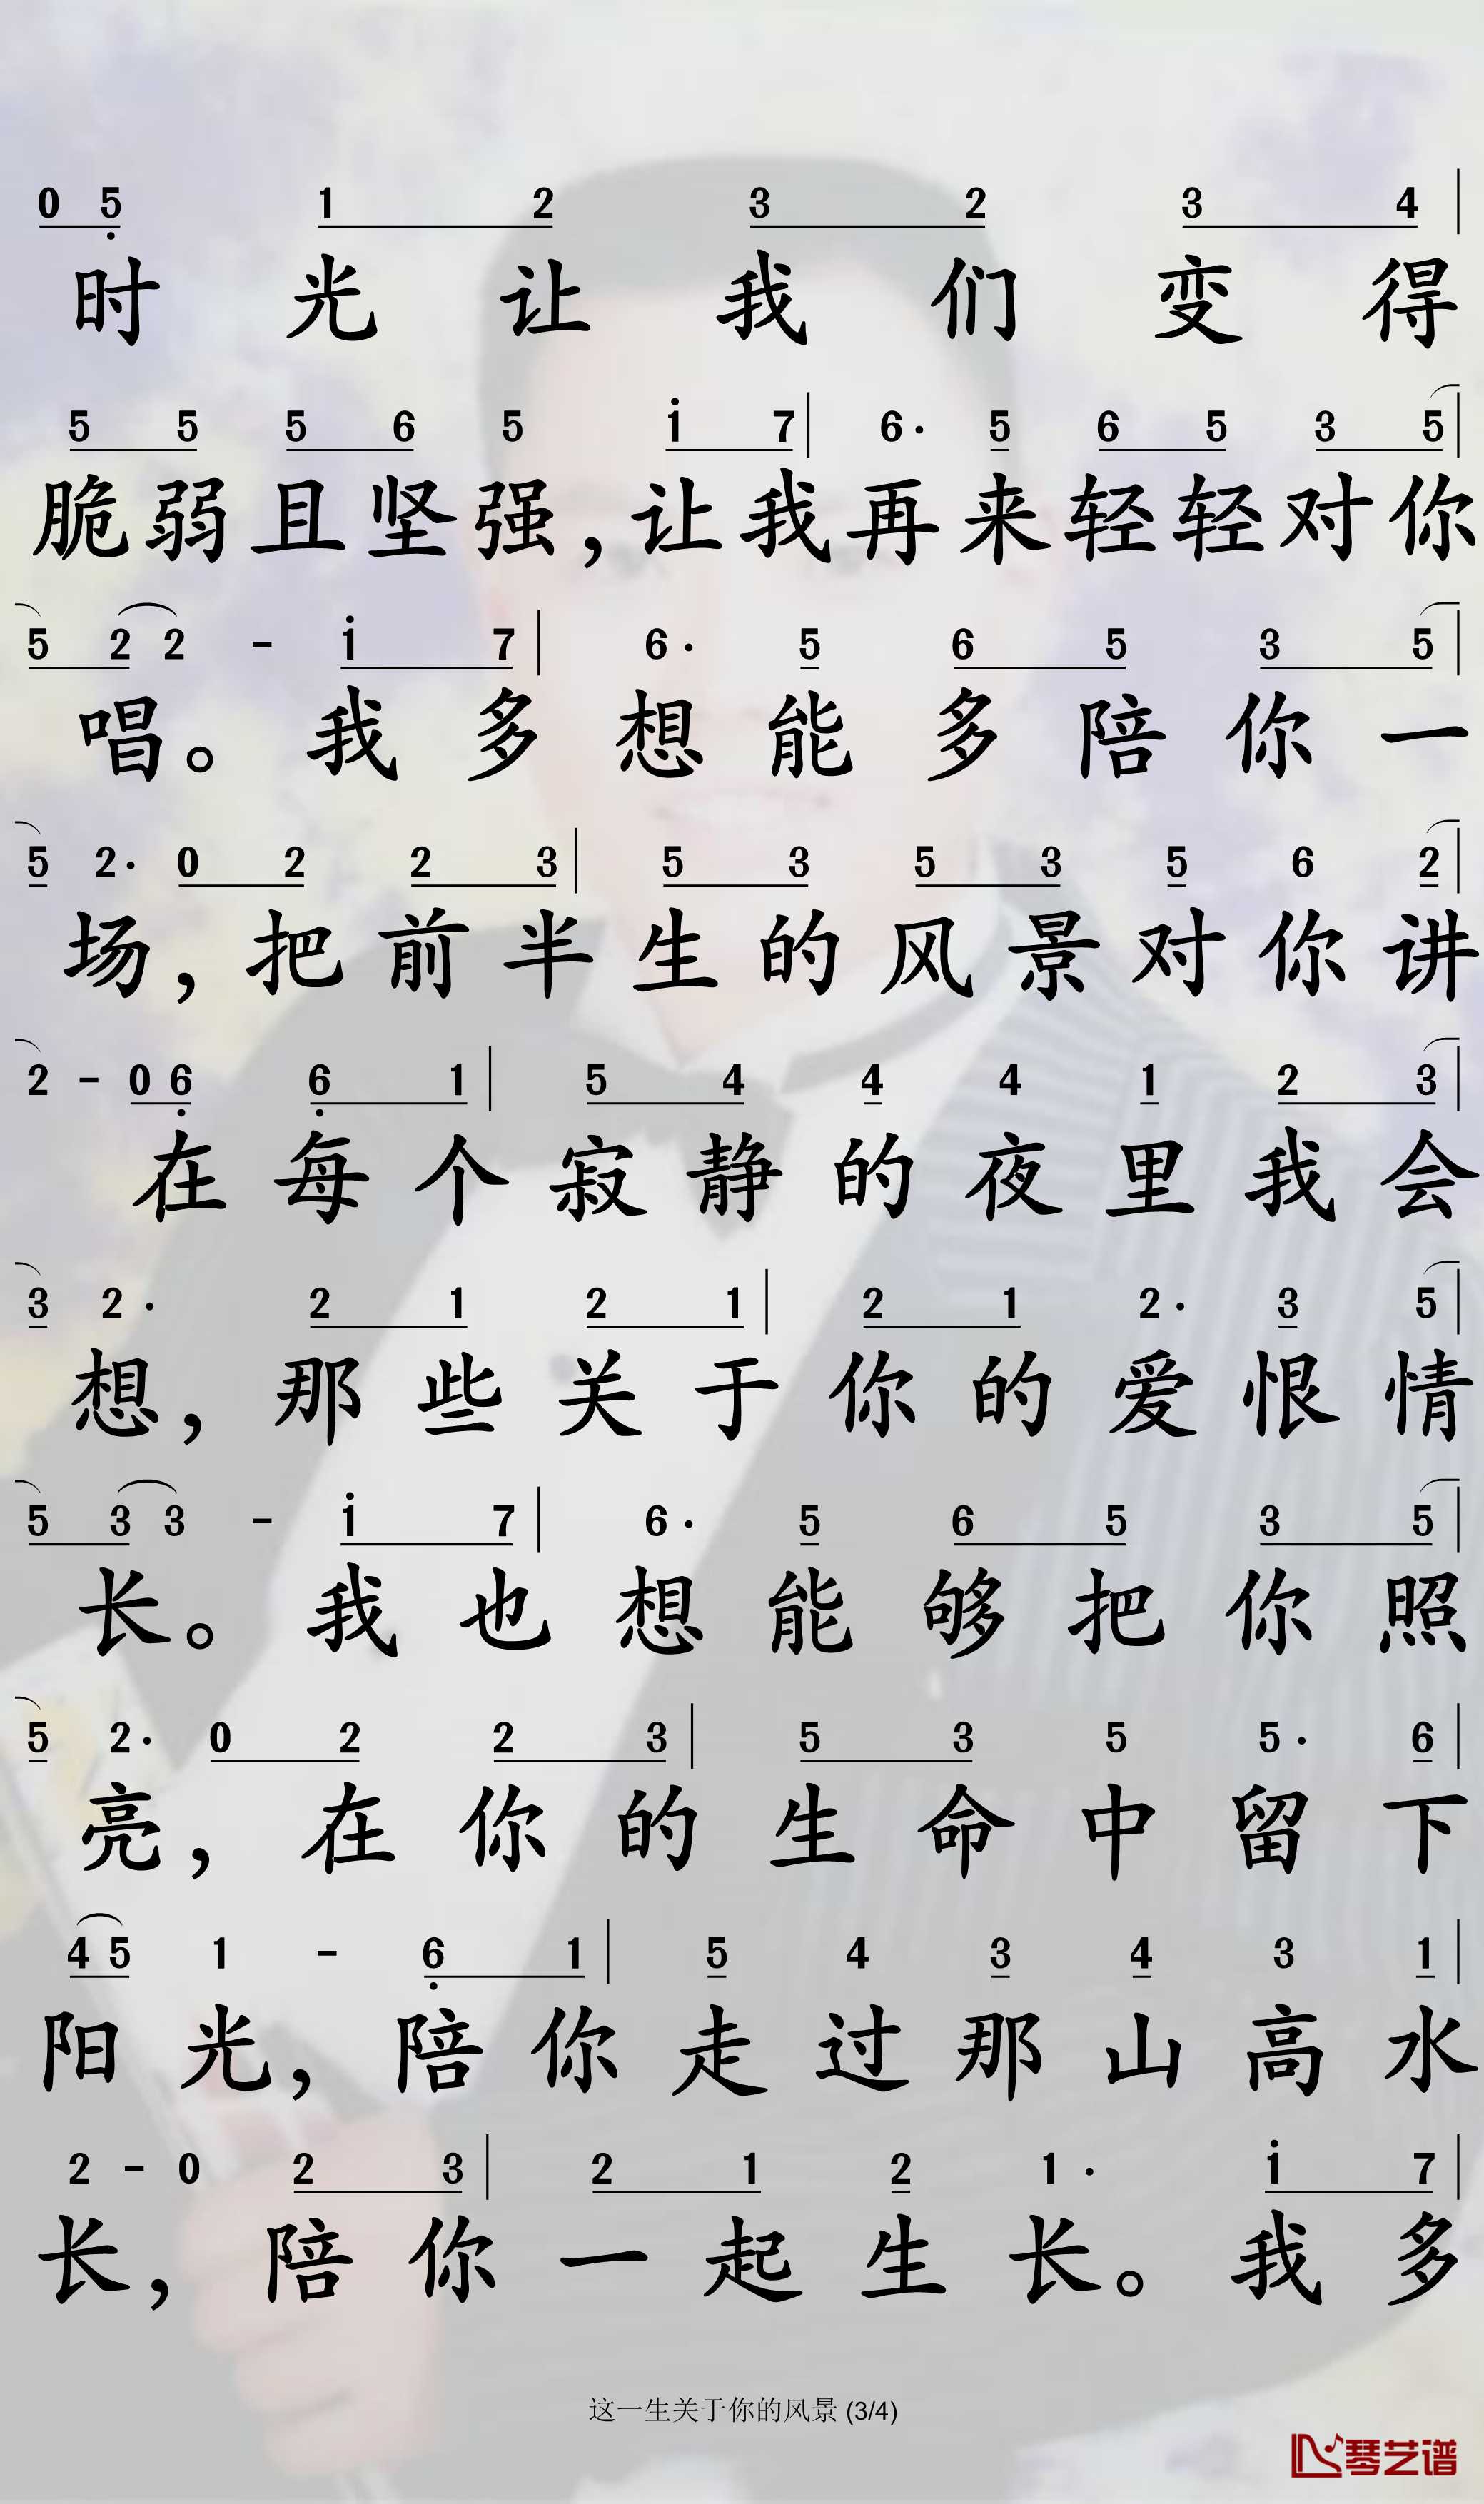 0 5 1 2 3 2 3 4
时光让我们变得
5 5 5 6 5 1 7 6· 5 6 5 3 5
脆弱且坚强,让我再来轻轻对你
5 2 2 - 1 7 6· 5 6 5 3 5
唱。我多想能多陪你一
5 2· 0 2 2 3 5 3 5 3 5 6 2
场,把前半生的风景对你讲
2 - 0 6 6 1 5 4 4 4 1 2 3
在每个寂静的夜里我会
3 2· 2 1 2 1 2 1 2· 3 5
想,那些关于你的爱恨情
5 3 3 - 1 7 6· 5 6 5 3 5
长。我也想能够把你照
5 2· 0 2 2 3 5 3 5 5· 6
亮,在你的生命中留下
4 5 1 - 6 1 5 4 3 4 3 1
阳光,陪你走过那山高水
2 - 0 2 3 2 1 2 1· 1 7
长,陪你一起生长。我多
这一生关于你的风景 (3/4)
琴艺谱